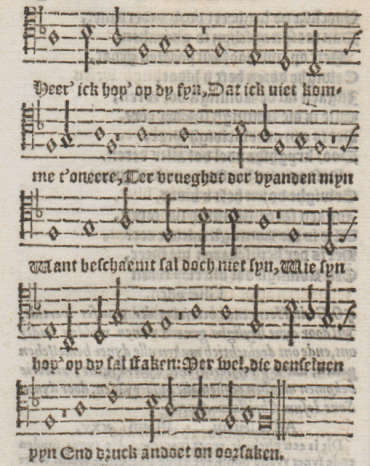 Heer' ick hop' op dy fyn, Dat ick niet kom-
me t'oneere, Ter vrueghdt der vyanden myn
Want beschaemt sal doch niet syn, Wie syn
hop' op dy sal staken: Mer wel, die denseluen
pyn End druck andoet on oorsaken.